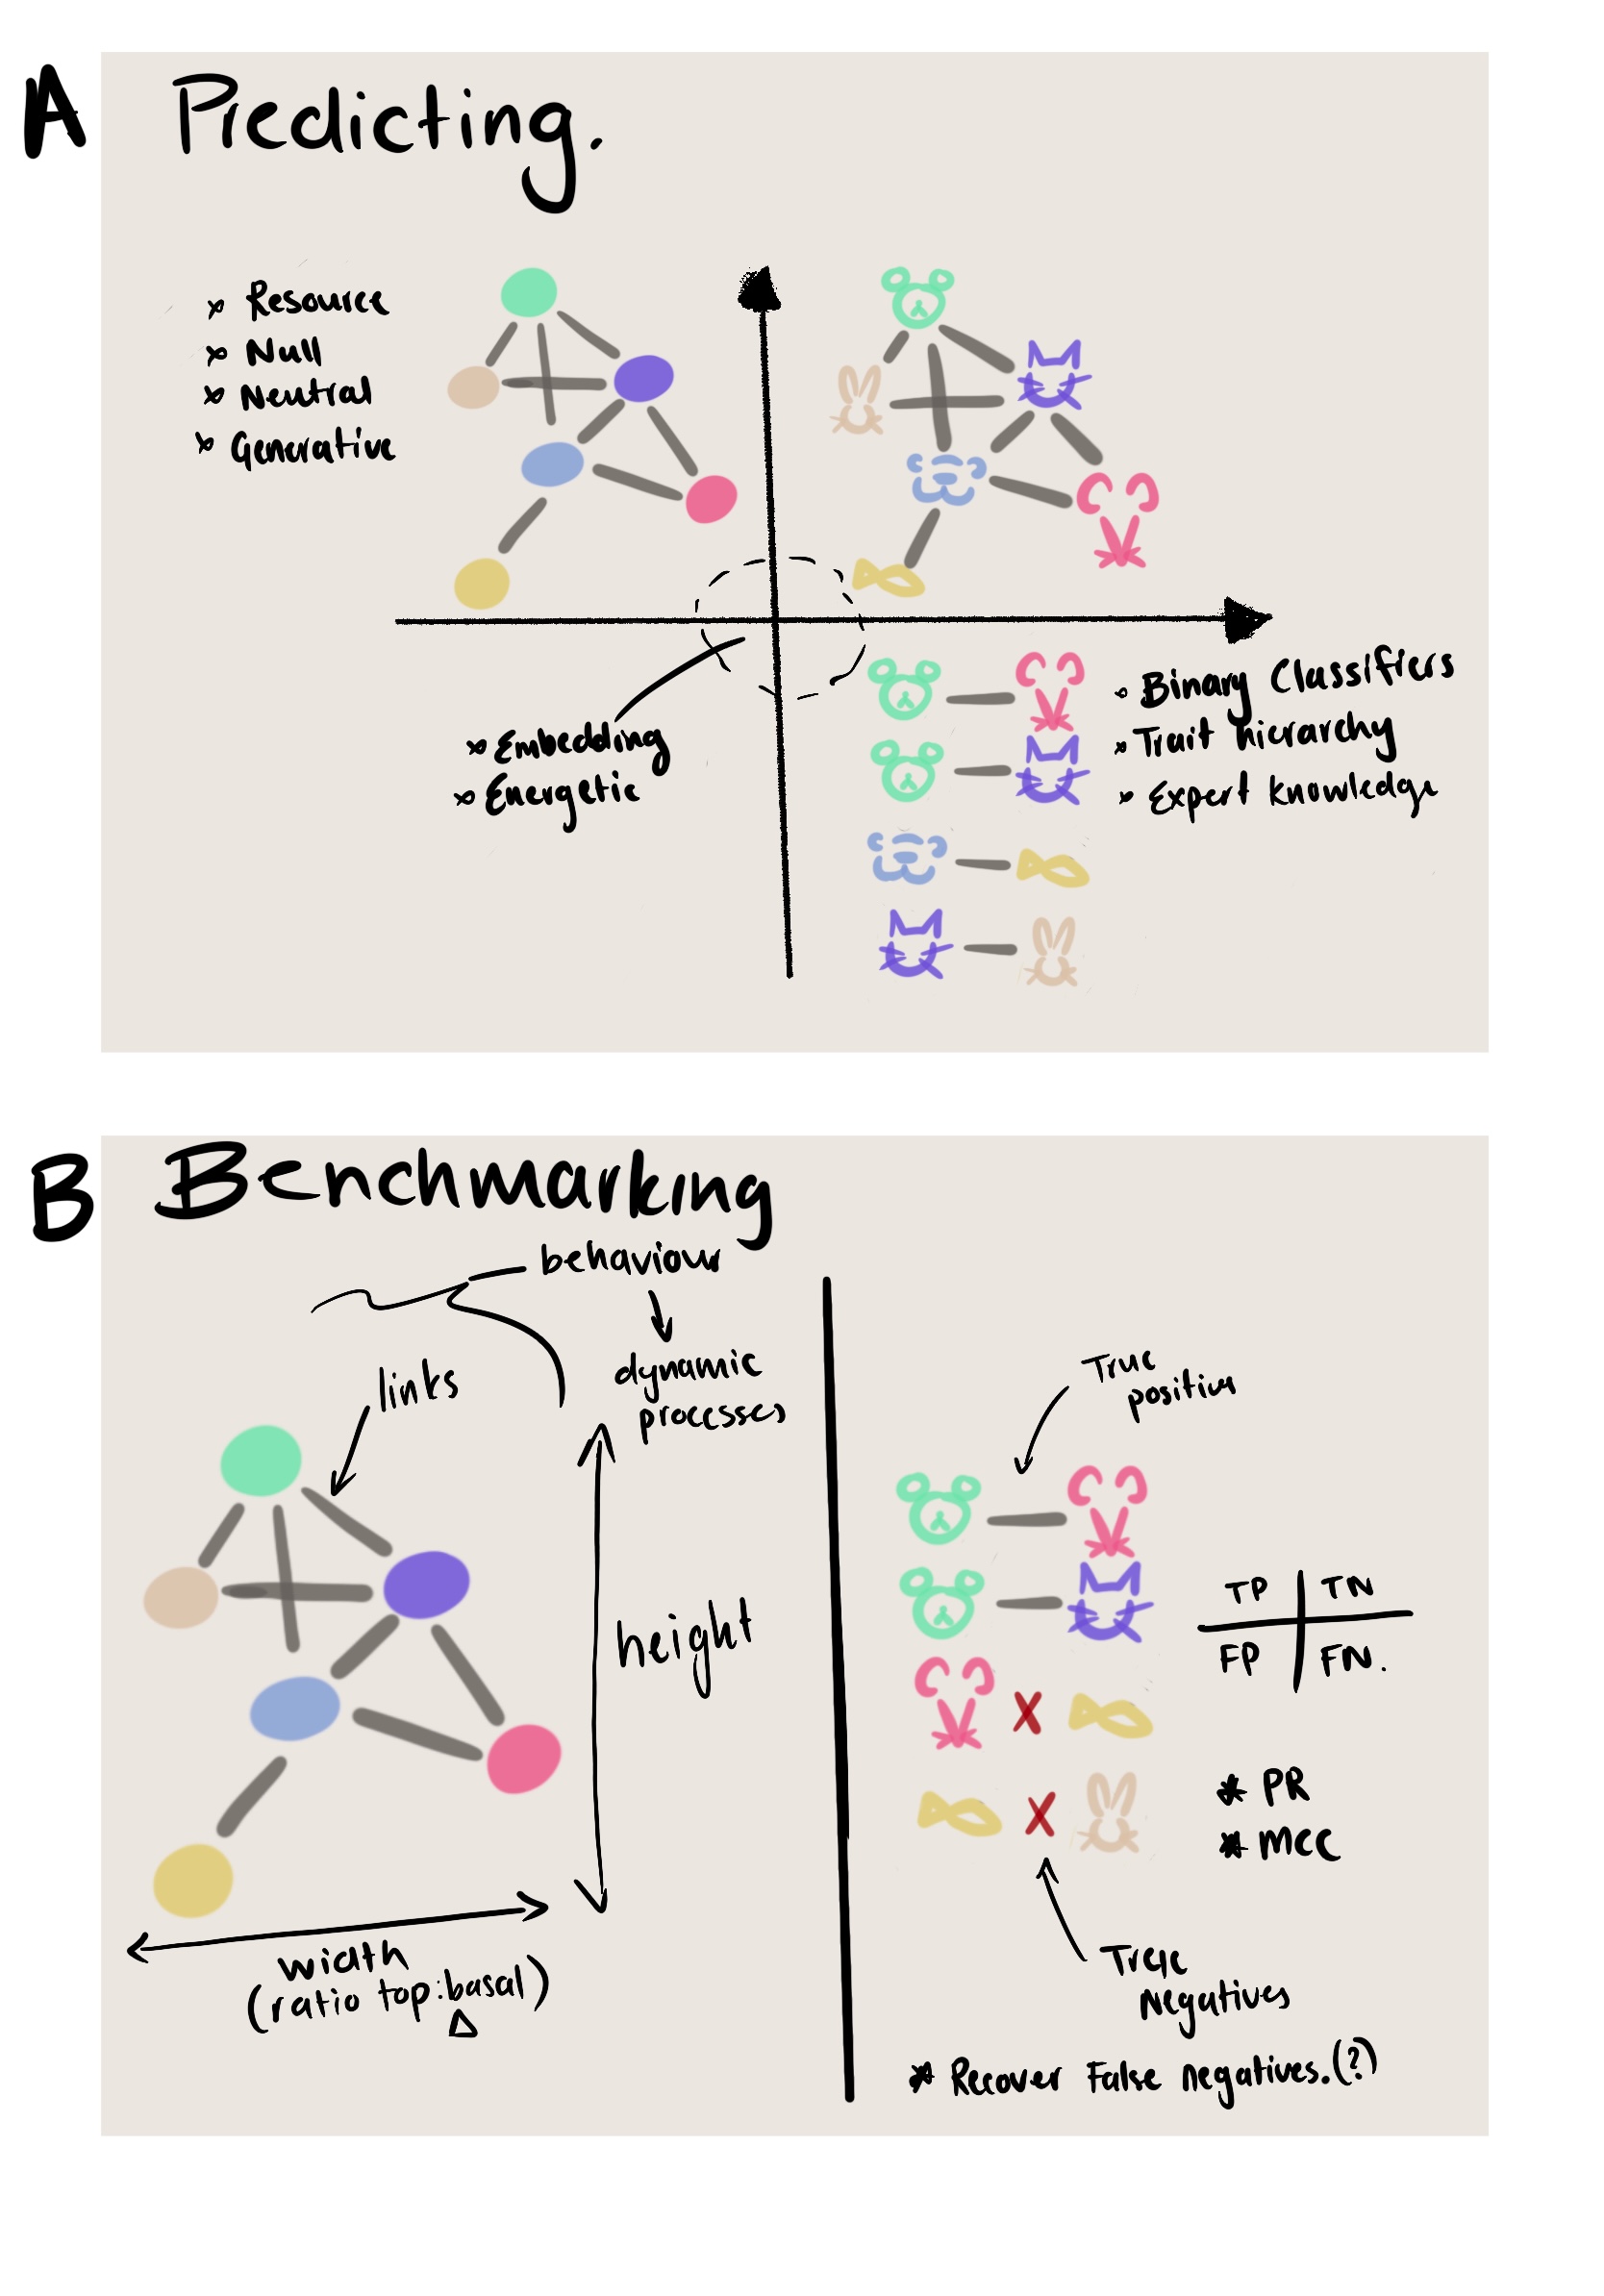 A
Predicting.
× Resource
× Null
× Neutral
× Generative
× Embedding
× Energetic
× Binary Classifiers
× Trait hierarchy
× Expert knowledge
B
Benchmarking
behaviour
links
dynamic
processes
height
width
(ratio top:basal)
True
positive
TP TN
FP FN.
* PR
* MCC
True
negatives
* Recover False negatives.(?)